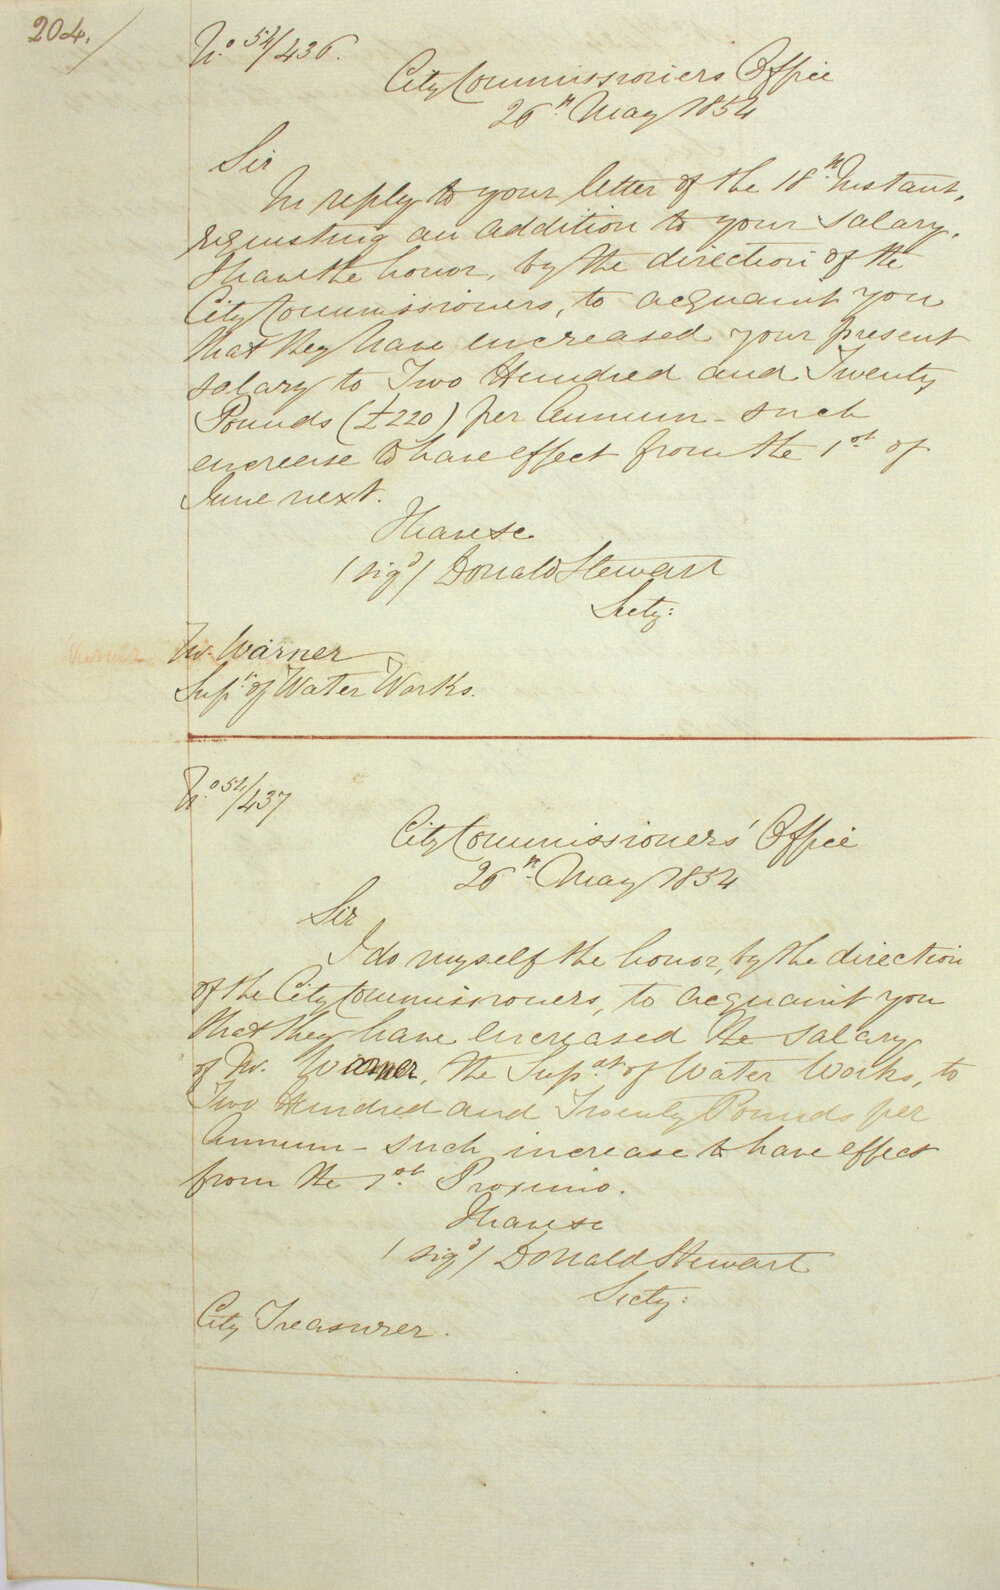 204.
No 54/436.
City Commissioners Office
26th May 1854
Sir
In reply to your letter of the 18th Instant,
requesting an addition to your salary,
I have the honor, by the direction of the
City Commissioners, to acquaint you
that they have increased your present
salary to Two Hundred and Twenty
Pounds (£220) per Annum - such
increase to have effect from the 1st of
June next.
I have &c
(sigd) Donald Stewart
Secty:
Warner Mr. Warner
Supt of Water Works.
No 54/437
City Commissioners' Office
26th May 1854
Sir
I do myself the honor, by the direction
of the City Commissioners, to acquaint you
that they have increased the salary
of Mr. Warner, the Supdt of Water Works, to
Two Hundred and Twenty Pounds per
Annum - such increase to have effect
from the 1st Proximo.
I have &c
(sigd) Donald Stewart
Secty:
City Treasurer.